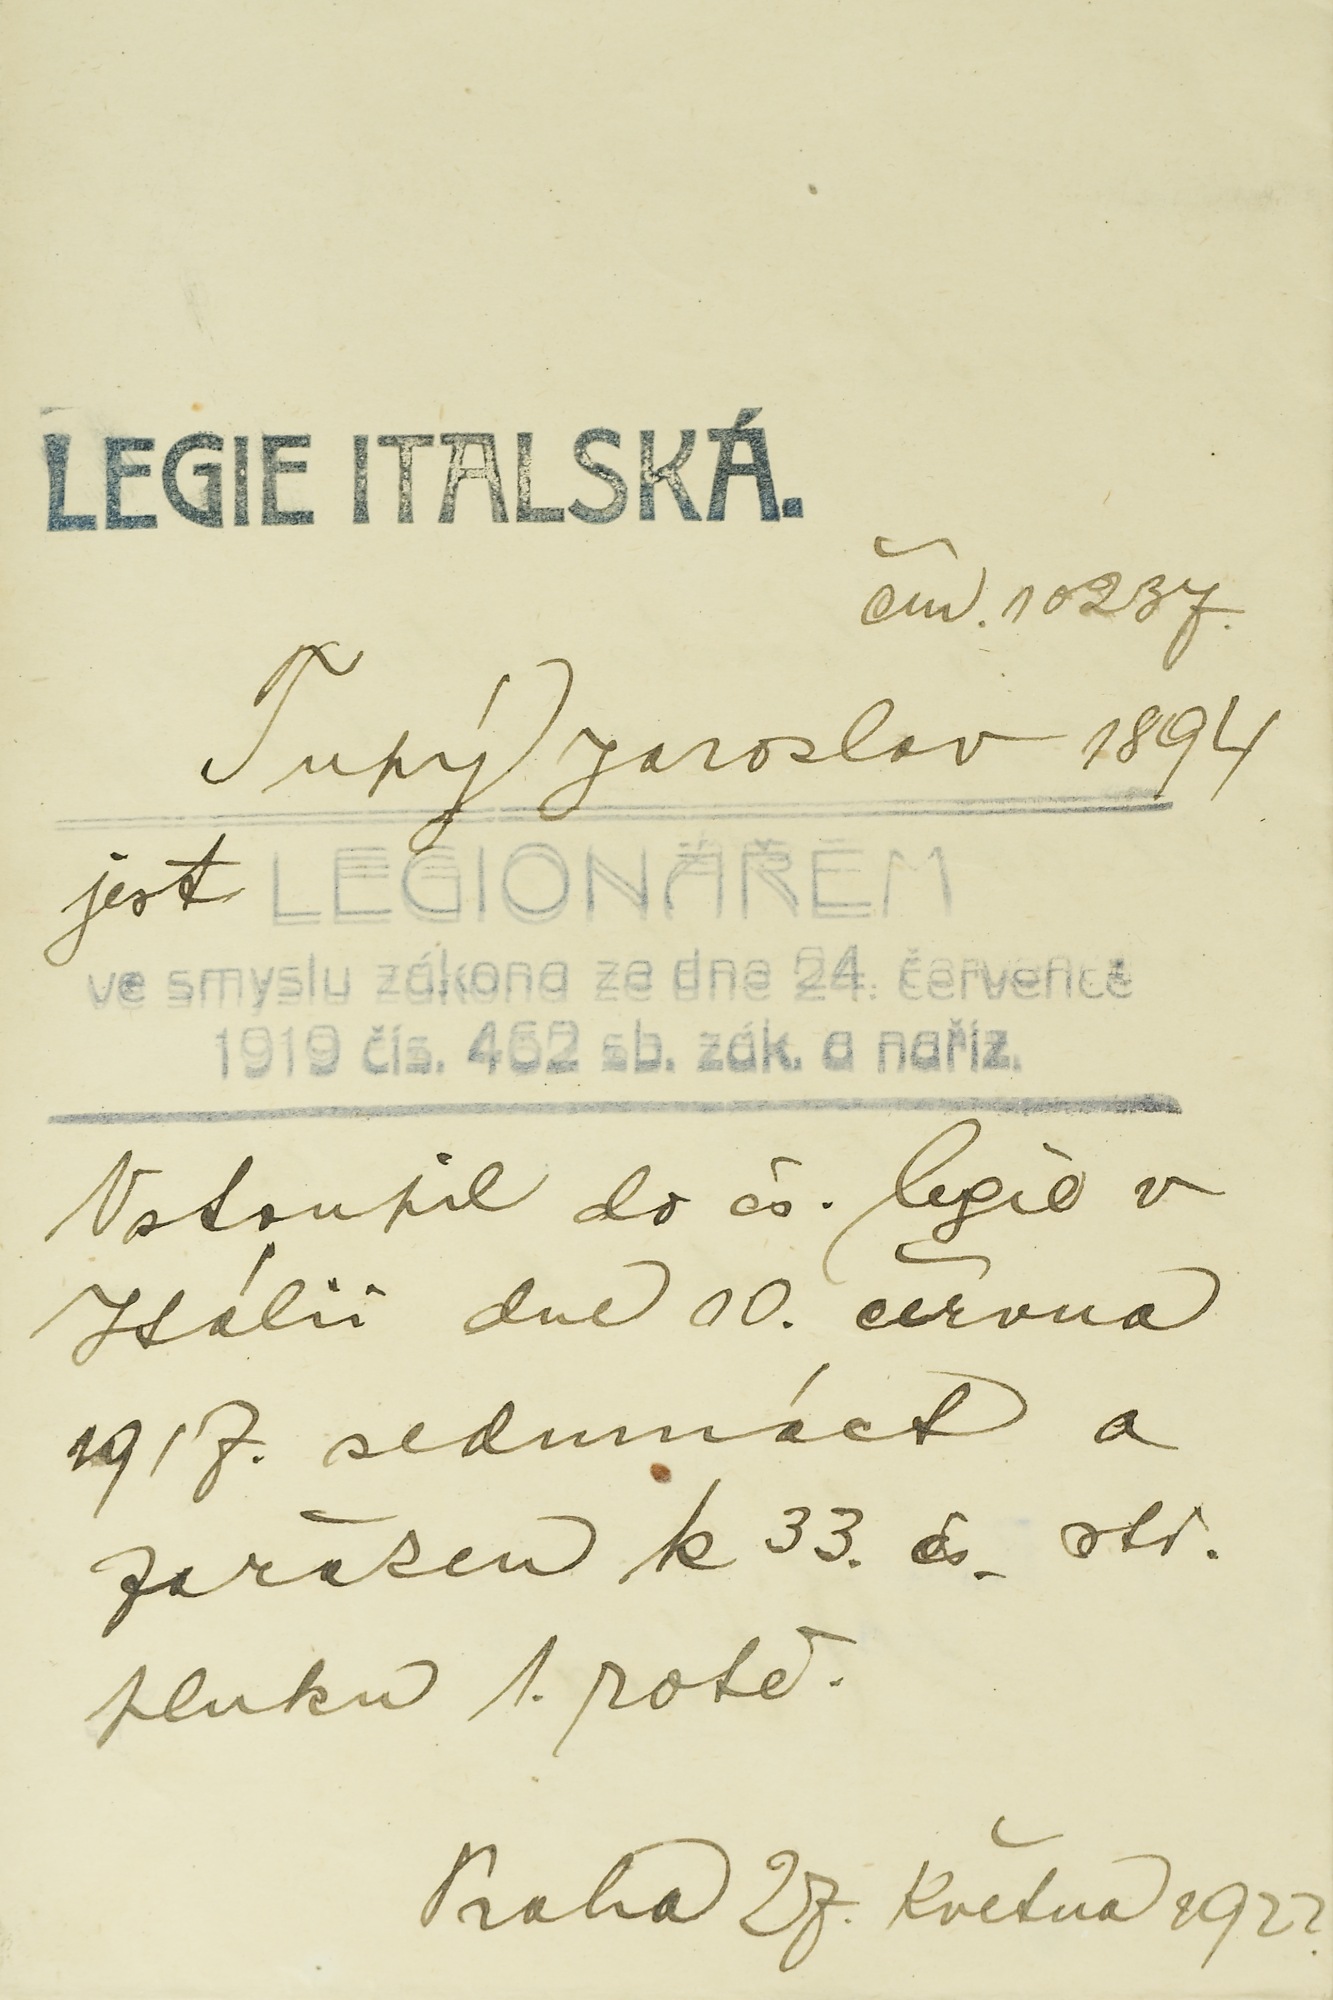 LEGIE ITALSKÁ.
čm. 10237.
Tupý Jaroslav 1894
jest LEGIONÁŘEM
ve smyslu zákona ze dne 24. července
1919 čís. 462 sb. zák. a naříz.
Vstoupil do čs. legie v
Itálii dne 10. června
1917. sedumáct a
zařazen k 33. čs. stř.
pluku 1. rotě.
Praha 27. Května 1922.